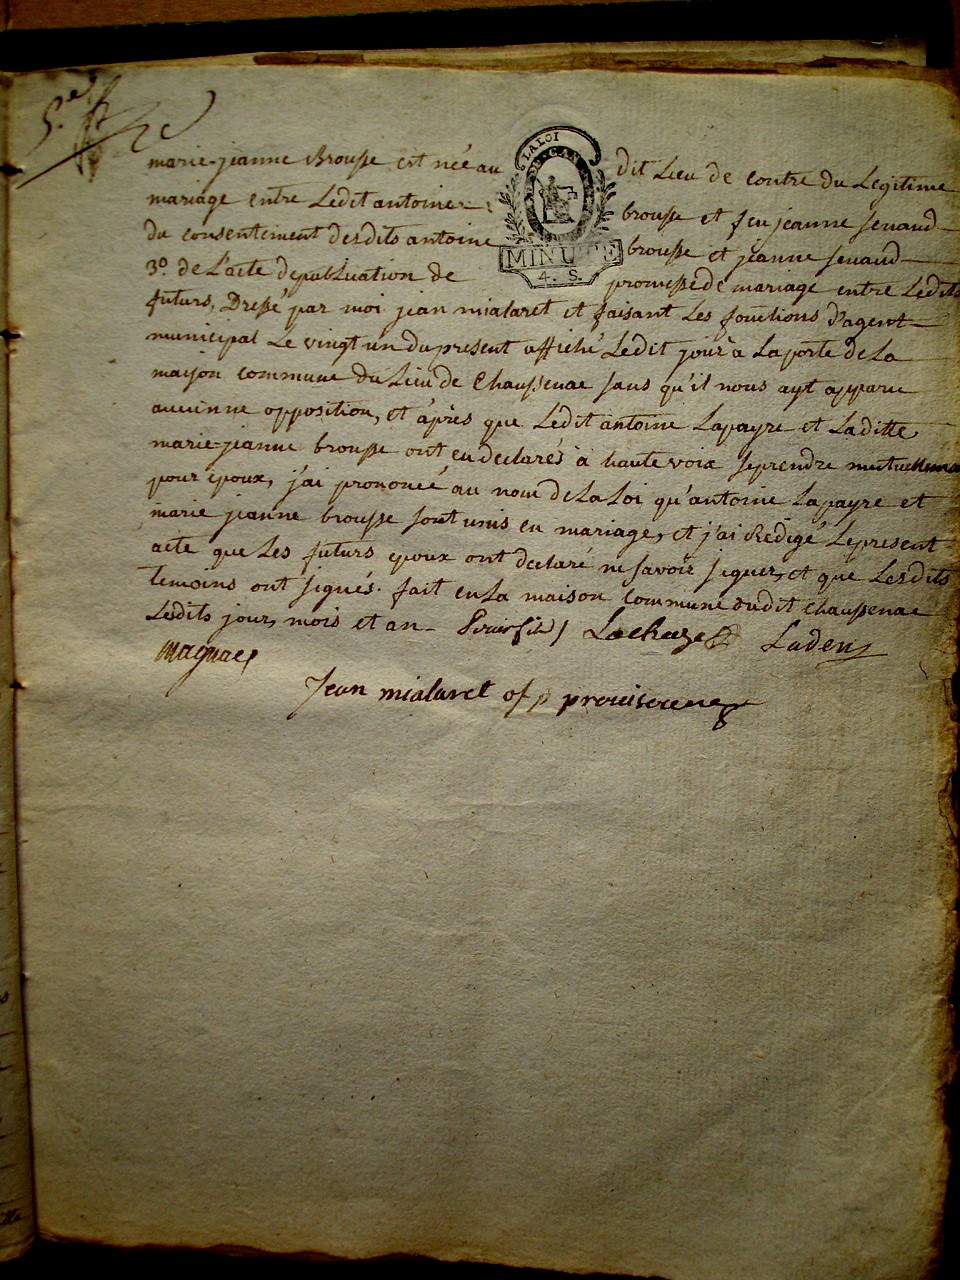 5.e
LA LOI
marie-jeanne Brousse est née au dit Lieu de contre du Legitime
mariage entre Ledit antoine brousse et feu jeanne senaud
du consentement desdits antoine brousse et jeanne senaud
MINUTE
4. S.
3º. de L'acte depubLication de promesse de mariage entre Lesdits
futurs, Dressé par moi jean mialaret et faisant Les fonctions d'agent
municipal Le vingt un du present affiché Ledit jour à La porte de La
maison commune du Lieu de Chaussenac sans qu'il nous ayt apparu
aucunne opposition, et après que Ledit antoine Lapayre et Laditte
marie-jeanne brousse ont eu declarés à haute voix se prendre mutuellement
pour epoux, j'ai prononcé au nom de La Loi qu'antoine Lapayre et
marie jeanne brousse sont unis en mariage, et j'ai Redigé Le present
acte que Les futurs epoux ont declaré ne savoir signer, et que Lesdits
temoins ont signés. fait en La maison commune dudit chaussenac
Lesdits jour, mois et an - Lachaze
magnac
Jean mialaret off